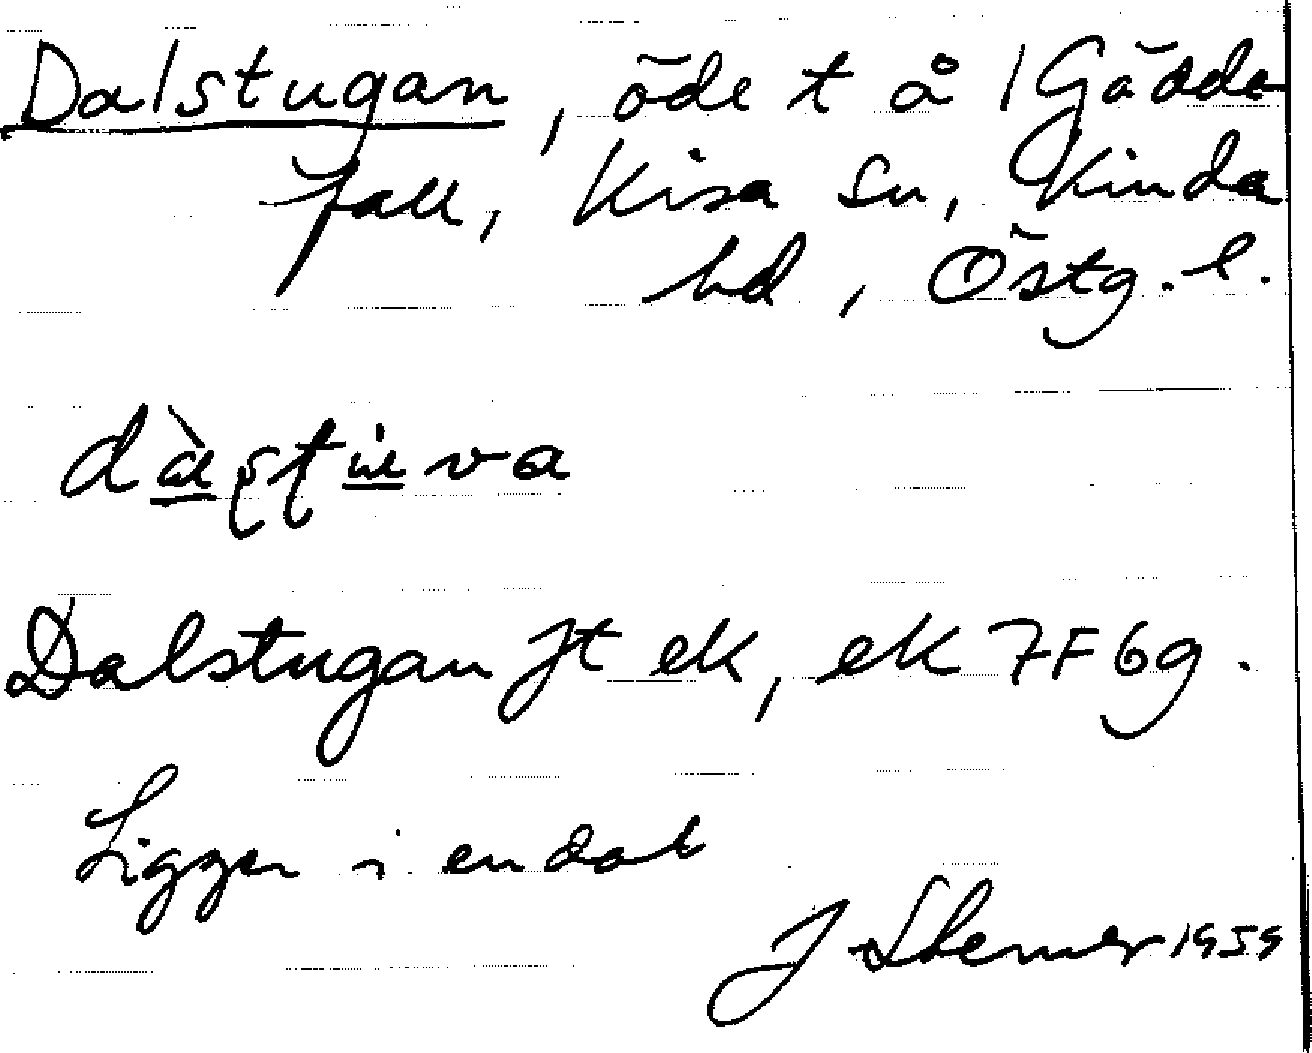 Dalstugan, öde t å 1 Gädde
fall, Kisa sn, Kinda
hd, Östg. l.
dàʂtu̇va
Dalstugan Jt ek, ek 7F6g.
Ligger i en dal
J 1959